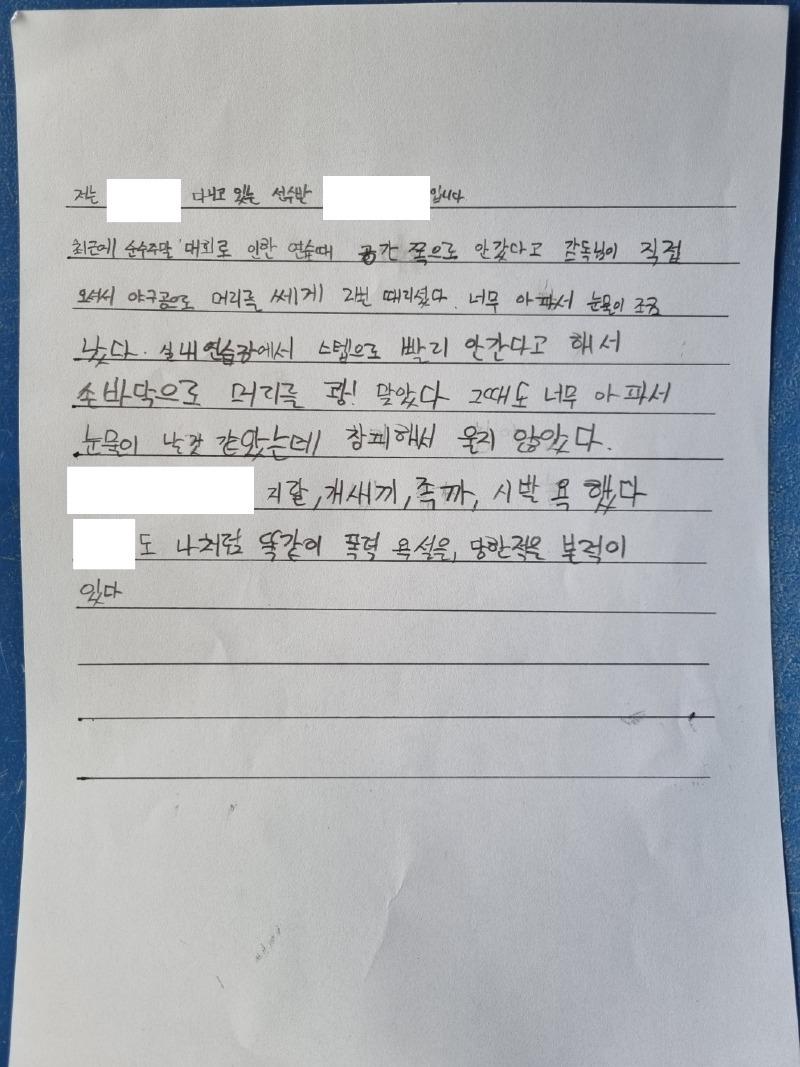 저는 다니고 있는 선수반 입니다
최근에 순수주말 대회로 인한 연습때 공간 쪽으로 안갔다고 감독님이 직접
오셔서 야구공으로 머리를 쎄게 2번 때리셨다. 너무 아파서 눈물이 조금
났다. 실내연습장에서 스텝으로 빨리 안간다고 해서
손바닥으로 머리를 쾅! 맞았다 그때도 너무 아파서
눈물이 날것 같았는데 창피해서 울지 않았다.
지랄, 개새끼, 족까, 시발 욕 했다
도 나처럼 똑같이 폭력 욕설을, 당한적을 본적이
있다